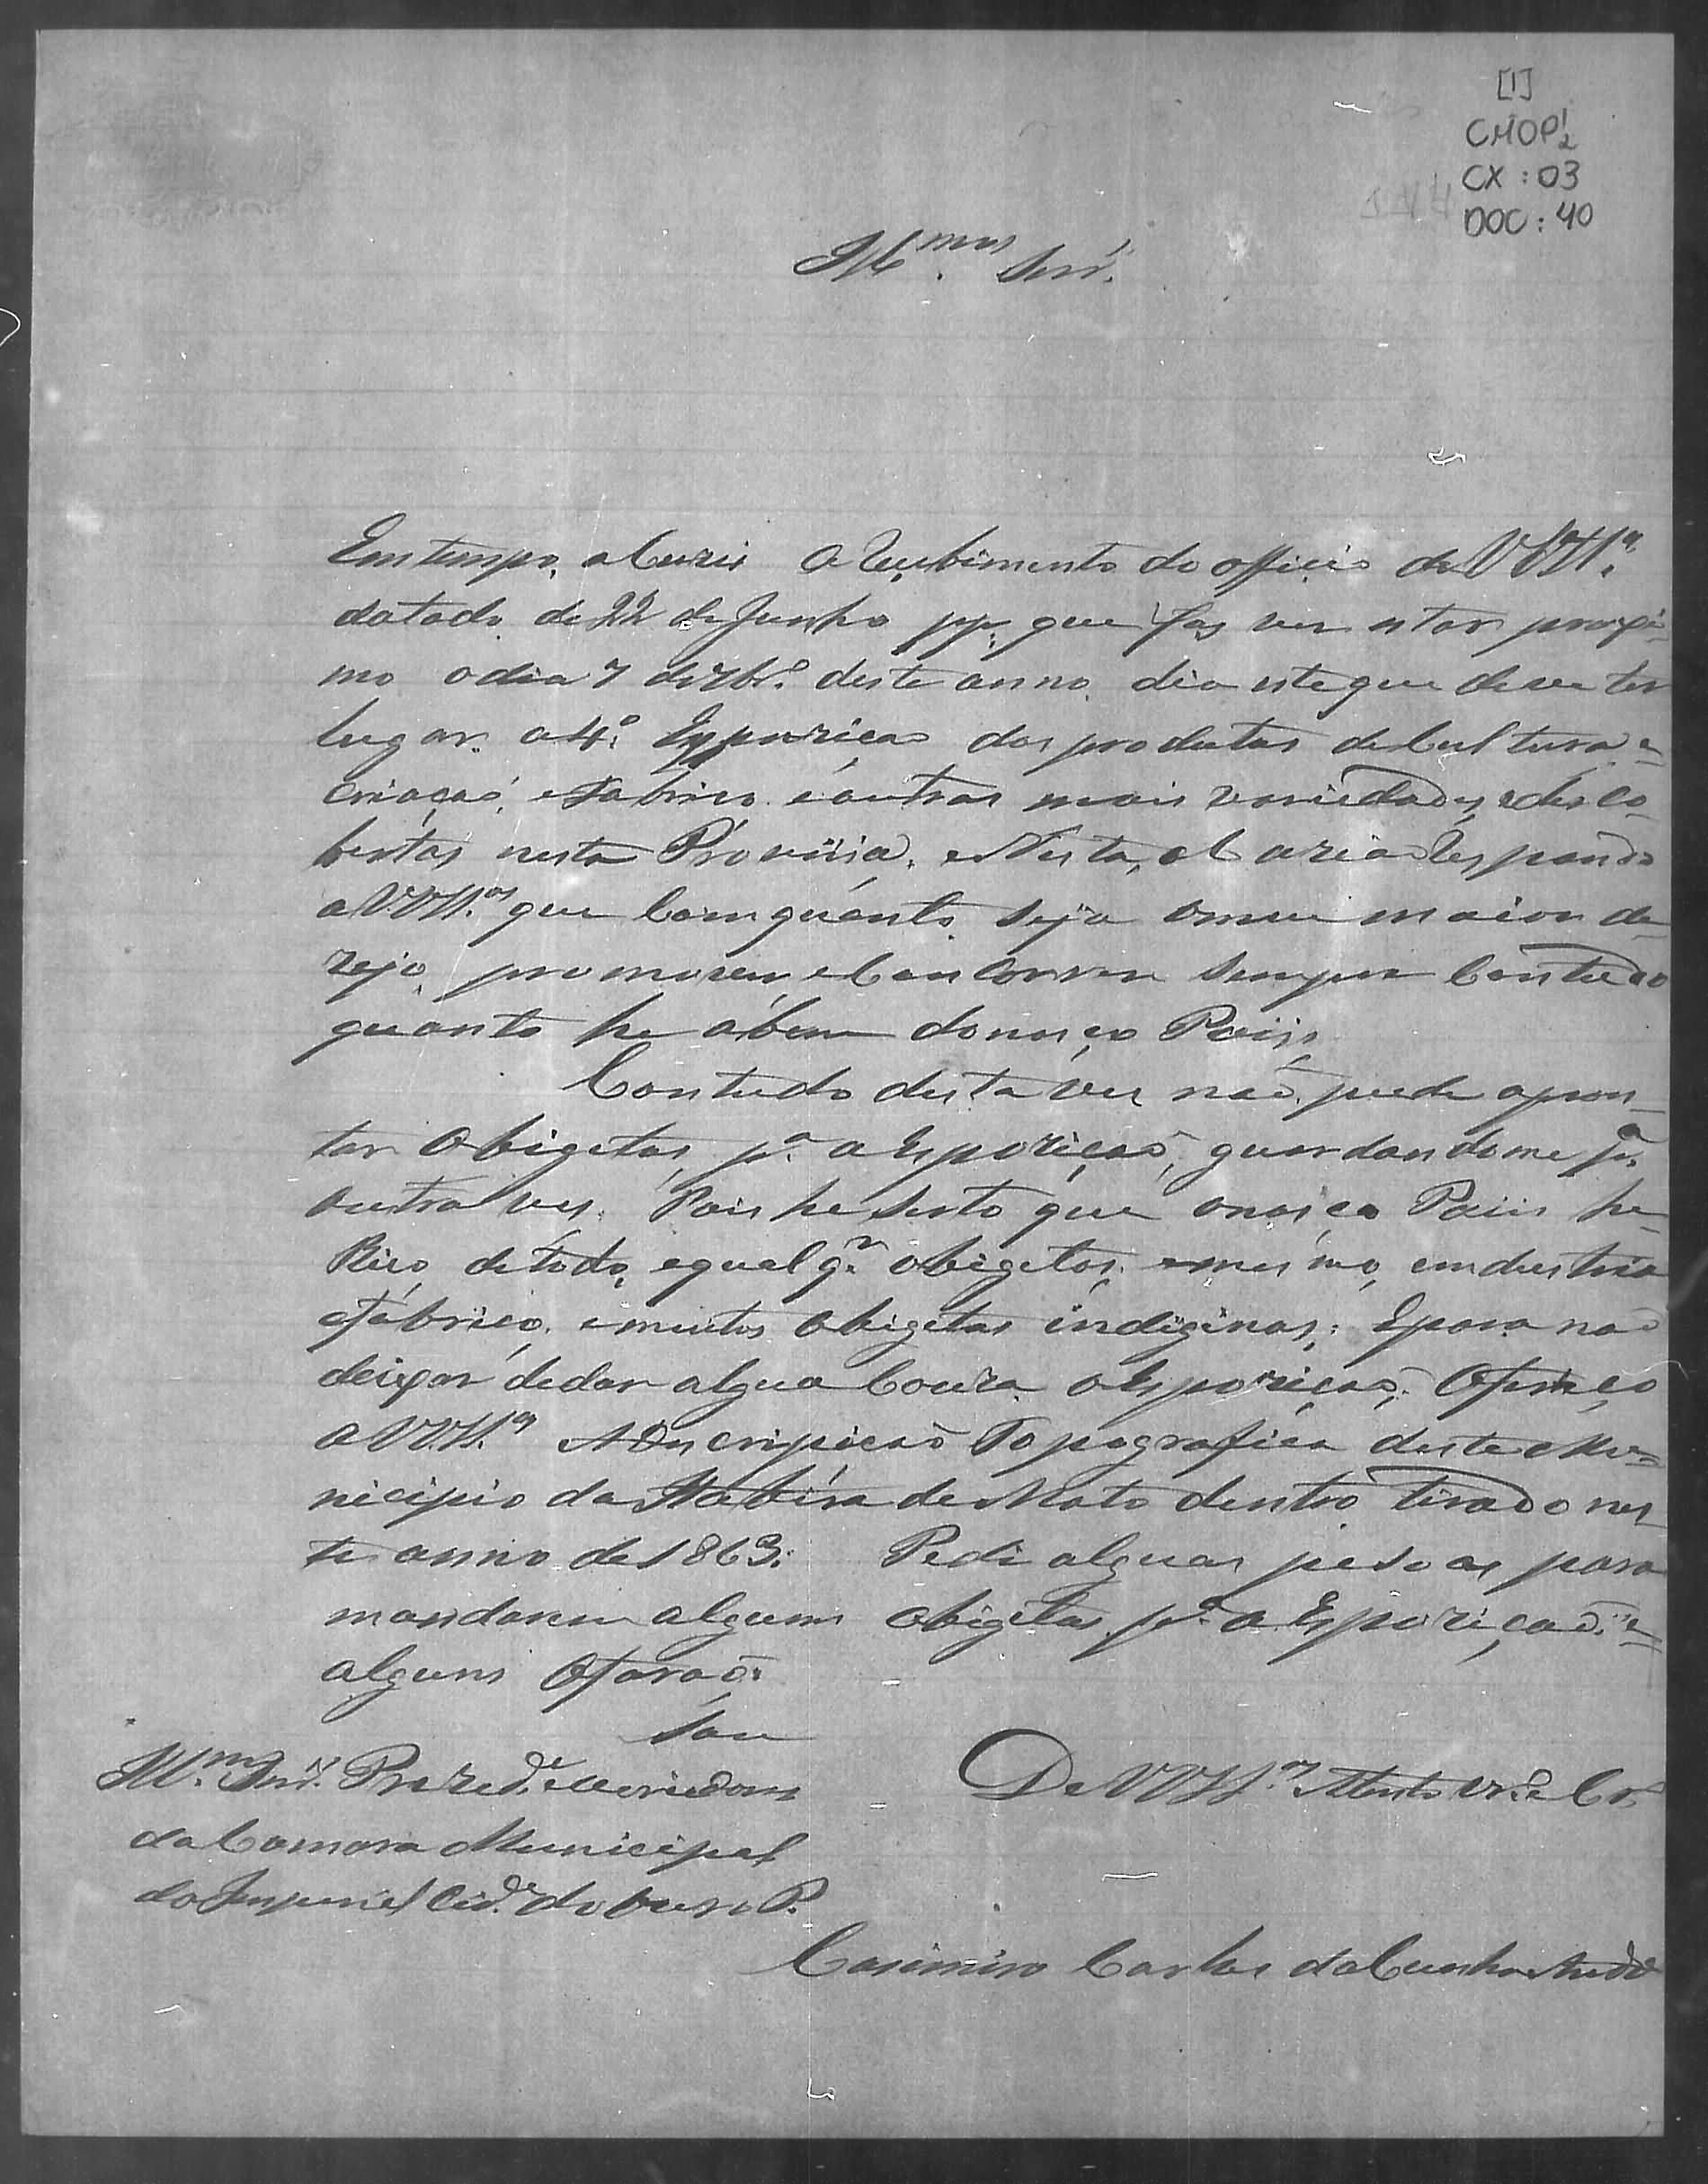 [1]
CMOP 1/2
CX : 03
DOC : 40
Ill.mos Snrs.
Em tempo, acuzei o recebimento do officio de VVSS.as
datado de 22 de Junho pp. que fas ver estar proxi-
mo o dia 7 de 7br.o deste anno, dia este que deve ter
lugar a 4.a Expozicão dos productos de Cultura e=
criaçaó, e fabrico e outras mais variedades, e desco-
bertas nesta Provincia, e Nesta, ocazião respondo
a VVSS.as que Com quanto seja o meu maior de-
zejo promover e Concorrer sempre Com tudo
quanto he ábem do noço Paiis
Contudo desta ves naõ pude apron-
tar Obigetos p.a a Espozicaõ, guardandome p.a
outra ves. Pois he serto que o noço Paiis he-
Rico de todo, e qual q.r obigetos, e mesmo endustria
e fabrico, e muitos obigetos indiginas; E para naõ
deixar de dar algua Couza a Espoziçaõ, Ofreço
a VVSS.as A Descripicaõ Topografica deste Mu=
nicipio da Itabira de Mato dentro tirado nes-
te anno de 1863. Pedi alguas pesoas para
mandarem alguns obigetos p.a a Espoziçaõ, e=
alguns Ofaraõ.
Sou
Ill.mos Snrs. Prezed.e e Veriadores
da Camara Municipal
da Imperial Cid.e do Ouro P.
De VVSS.as Atento Vr.e Cr.o
Casimiro Carlos da Cunha Andr.e